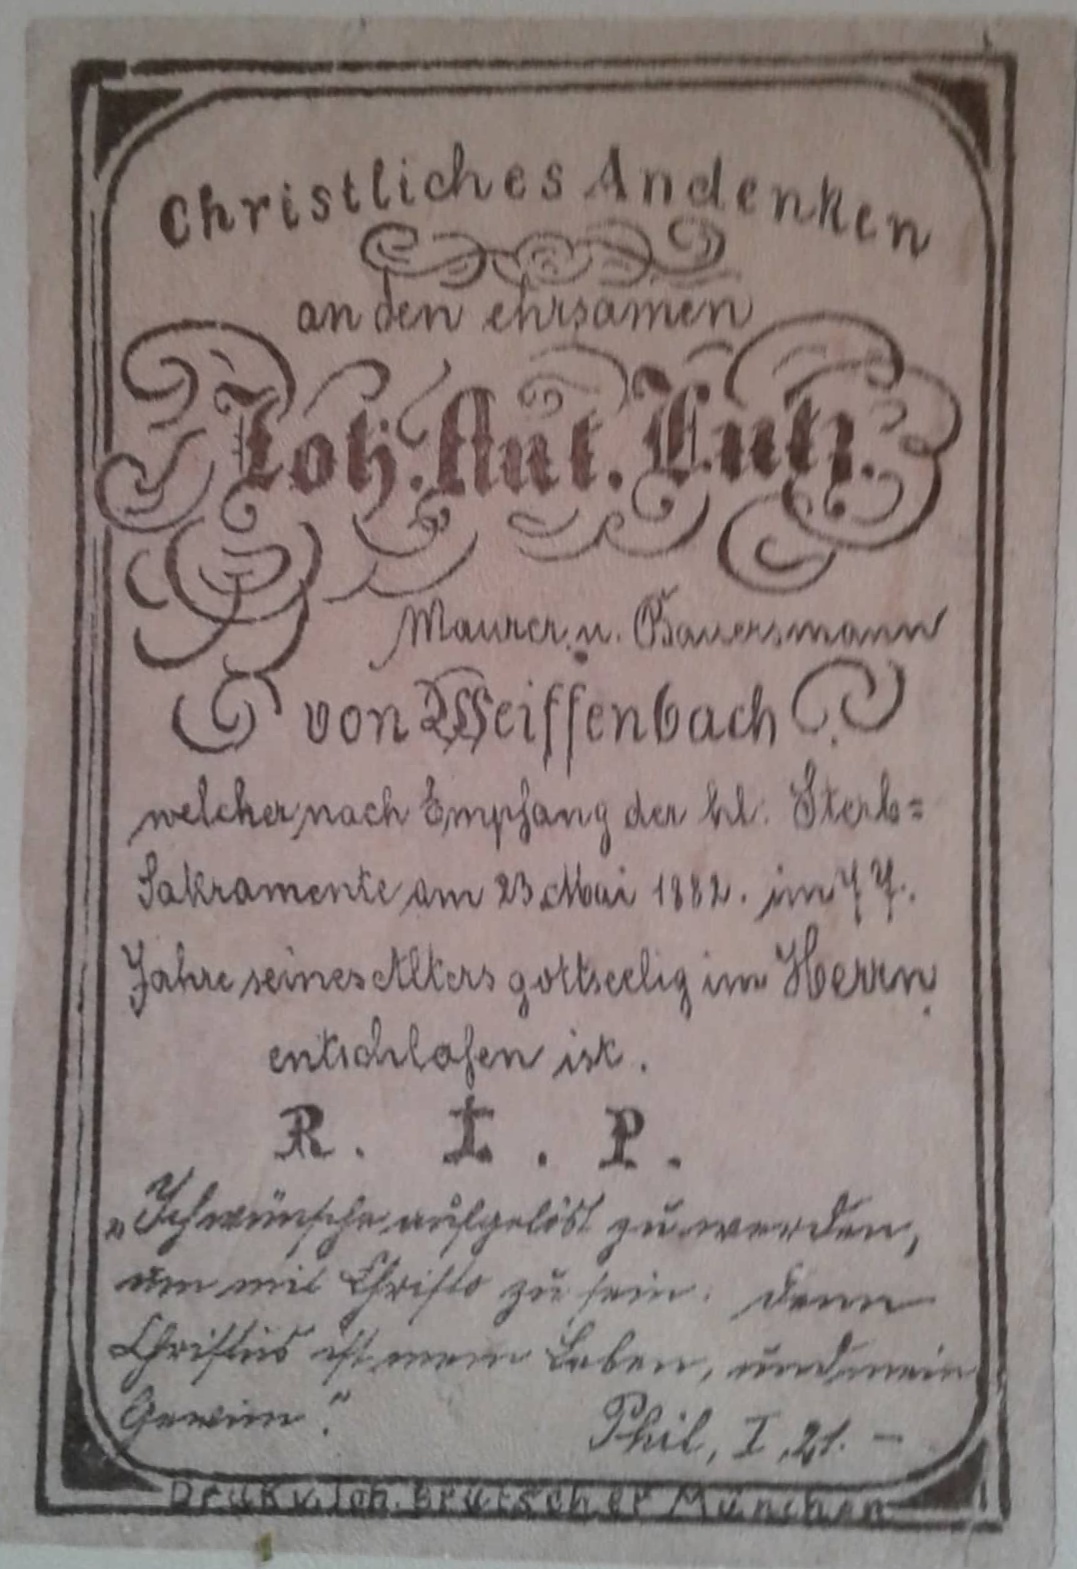 Christliches Andenken
an den ehrsamen
Joh. Ant. Lutz.
Maurer u. Bauersmann
von Weissenbach
welcher nach Empfang der hl. Sterb=
Sakramente am 23 Mai 1882. im 77.
Jahre seines Alters gottseelig im Herrn
entschlafen ist.
R. I. P.
„Ich wünsche aufgelöst zu werden,
um mit Christo zu sein. denn
Christus ist mein Leben, und mein
Gewinn."
Phil, I, 21. –
Druk v. Joh. Brutscher München